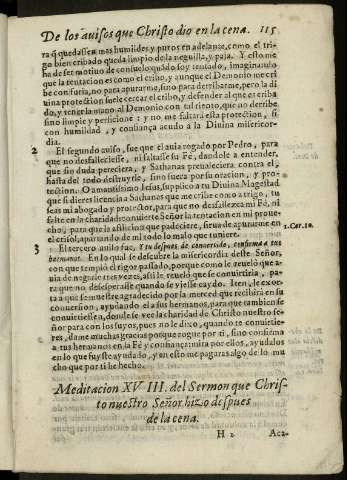 De los auisos que Christo dio en la cena. 115
ra q̃ quedassen mas humildes y puros en adelante, como el tri-
go bien cribado queda limpio de la neguilla, y paja. Y esto me
ha de ser motiuo de consuelo quãdo soy tentado, imaginando
que la tentacion es como el cribo, y aunque el Demonio me cri
be con furia, no para apurarme, sino para derribarme, pero la di
uina proteccion suele cercar el cribo, y defender al que es criba
do, y tener la mano al Demonio con tal tiento, que no derribe,
sino limpie y perficione: y no me faltarà esta proteccion, si
con humildad, y confiança acudo a la Diuina misericor-
dia.
2 El segundo auiso, fue que el auia rogado por Pedro, para
que no desfalleciesse, ni faltasse su Fé, dandole a entender,
que sin duda pereciera, y Sathanas preualeciera contra el,
hasta del todo destruyrle, sino fuera por su oracion, y pro-
teccion. O amantissimo Iesus, suplico a tu Diuina Magestad
que si dieres licencia a Sathanas que me cribe como a trigo, tu
seas mi abogado y protector, para que no desfallezca mi Fé, ni
falte en la charidad: conuierte Señor la tentacion en mi proue-
cho, para que la aflicion que padeciere, sirua de apurarme en 1. Cor. 10.
el crisol, apartando de mi todo lo malo que tuuiere.
3 El tercero auiso fue, Y tu despues de conuertido, confirma a tus
hermanos. En lo qual se descubre la misericordia deste Señor,
con que templò el rigor passado, porque como le reuelò que a-
uia de negarle tres vezes, assi le reuelò que se conuirtiria, pa-
ra que no desesperasse quando se viesse caydo. Iten, le exor-
ta a que se muestre agradecido por la merced que recibirà en su
conuersion, ayudando el a sus hermanos, para que tambien se
conuirtiessen, donde se vee la charidad de Christo nuestro se-
ñor para con los suyos, pues no le dize, quando te conuirtie-
res, dame muchas gracias porque rogue por ti, sino confirma
a tus hermanos en la Fé y confiança mia por ellos, ayudalos
en lo que fuyste ayudado, y en esto me pagaras algo de lo mu
cho que por ti he hecho.
Meditacion XVIII. del Sermon que Chris-
to nuestro Señor hizo despues
de la cena.
H 2 Aca-